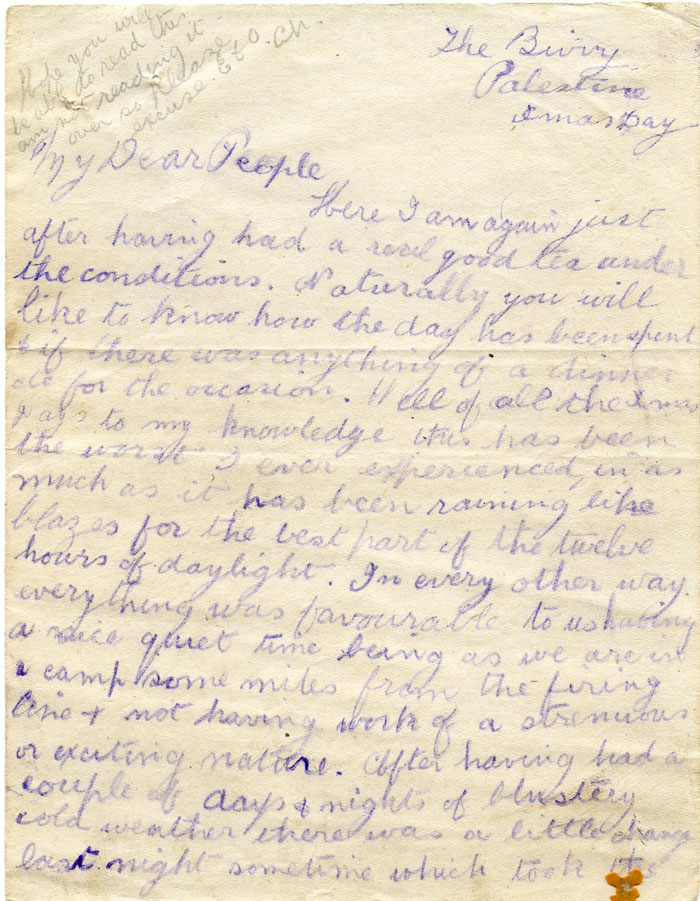 Hope you will
be able to read this
am not reading it
over so please
excuse. E & O. Ch.
The Bivvy
Palestine
Xmas Day
My Dear People
Here I am again just
after having had a real good tea under
the conditions. Naturally you will
like to know how the day has been spent
& if there was anything of a dinner
etc for the occasion. Well of all the Xmas
Days to my knowledge this has been
the worst I ever experienced, in as
much as it has been raining like
blazes for the best part of the twelve
hours of daylight. In every other way
everything was favourable to us having
a nice quiet time being as we are in
a camp some miles from the firing
line & not having work of a strenuous
or exciting nature. After having had a
couple of days & nights of blustery
cold weather there was a little change
last night sometime which took the